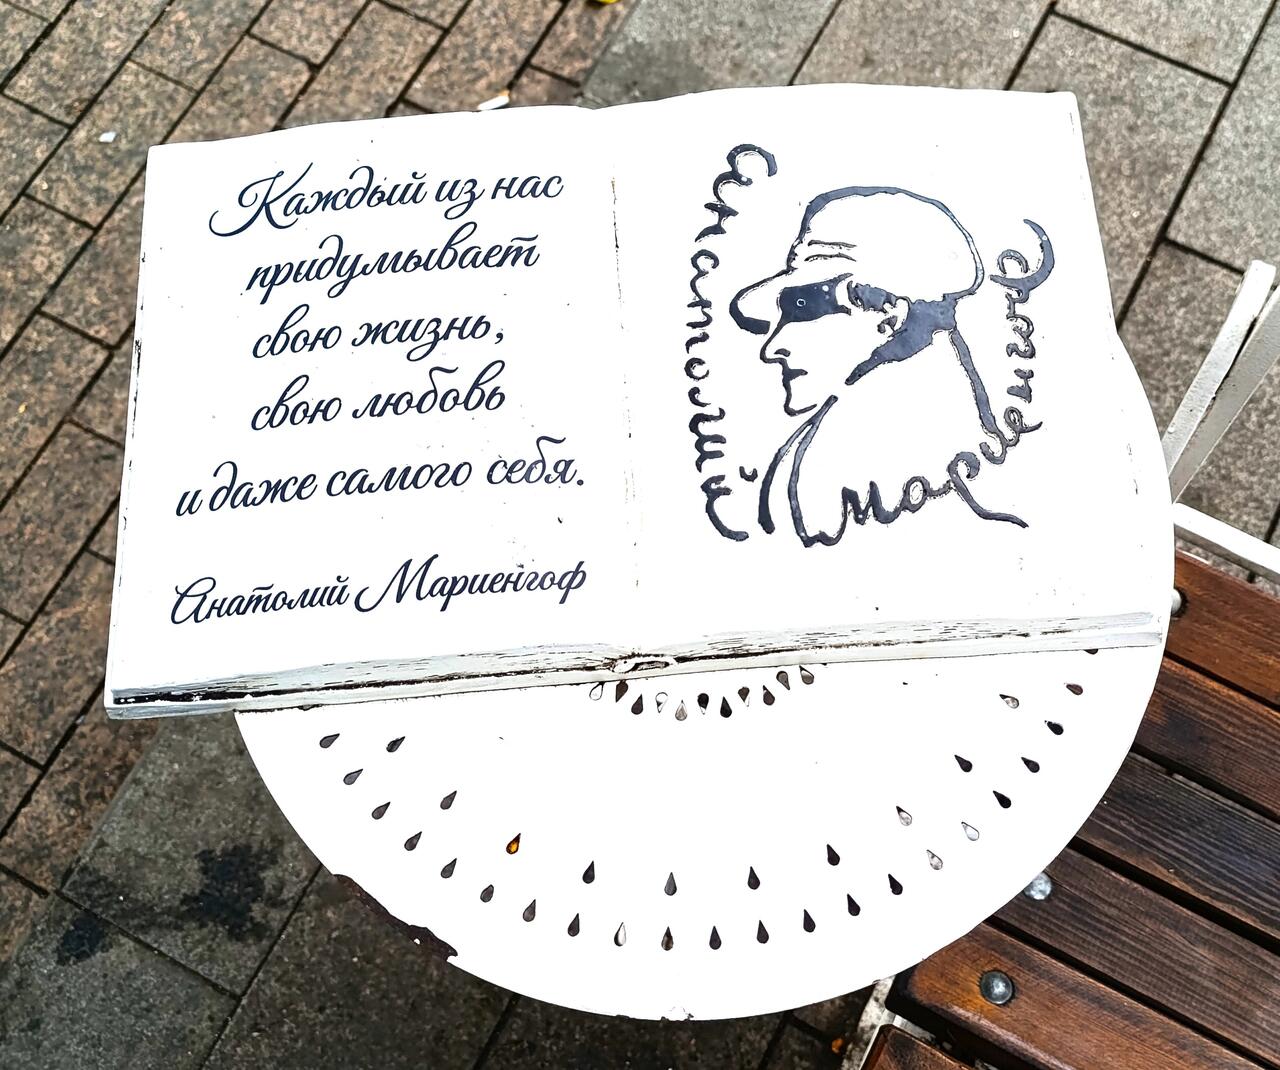 Каждый из нас
придумывает
свою жизнь,
свою любовь
и даже самого себя.
Анатолий Мариенгоф
анатолий
мариенгоф